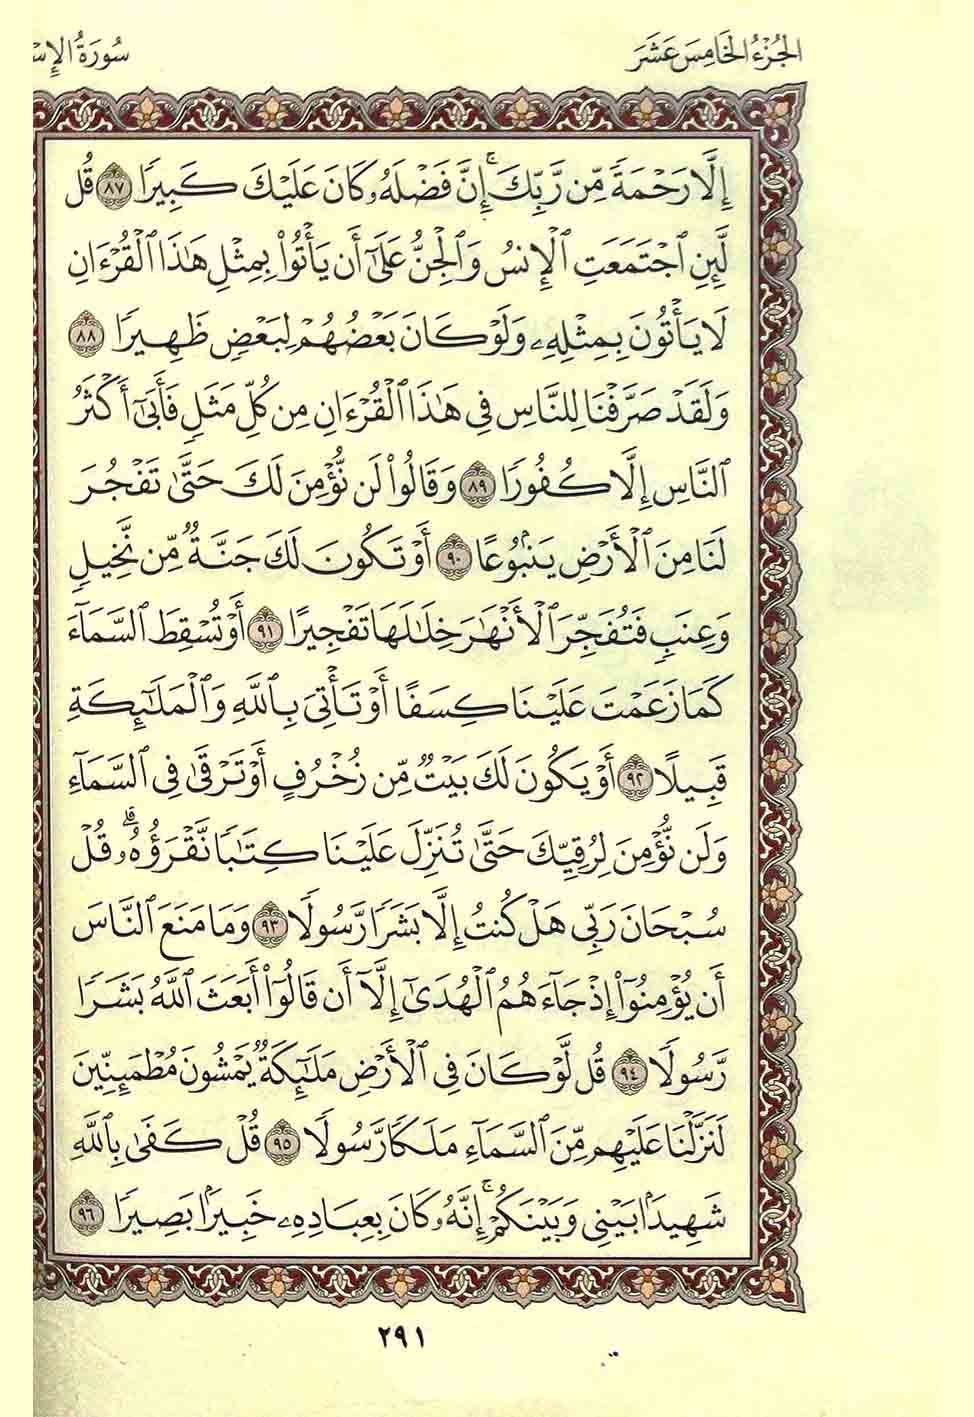 الجُزْءُ الخَامِسَ عَشَرَ
سُورَةُ الإِسْ
إِلَّا رَحْمَةً مِّن رَّبِّكَ ۚ إِنَّ فَضْلَهُۥ كَانَ عَلَيْكَ كَبِيرًا ٨٧ قُل
لَّئِنِ ٱجْتَمَعَتِ ٱلْإِنسُ وَٱلْجِنُّ عَلَىٰٓ أَن يَأْتُوا۟ بِمِثْلِ هَٰذَا ٱلْقُرْءَانِ
لَا يَأْتُونَ بِمِثْلِهِۦ وَلَوْ كَانَ بَعْضُهُمْ لِبَعْضٍ ظَهِيرًا ٨٨
وَلَقَدْ صَرَّفْنَا لِلنَّاسِ فِى هَٰذَا ٱلْقُرْءَانِ مِن كُلِّ مَثَلٍ فَأَبَىٰٓ أَكْثَرُ
ٱلنَّاسِ إِلَّا كُفُورًا ٨٩ وَقَالُوا۟ لَن نُّؤْمِنَ لَكَ حَتَّىٰ تَفْجُرَ
لَنَا مِنَ ٱلْأَرْضِ يَنۢبُوعًا ٩٠ أَوْ تَكُونَ لَكَ جَنَّةٌ مِّن نَّخِيلٍ
وَعِنَبٍ فَتُفَجِّرَ ٱلْأَنْهَٰرَ خِلَٰلَهَا تَفْجِيرًا ٩١ أَوْ تُسْقِطَ ٱلسَّمَآءَ
كَمَا زَعَمْتَ عَلَيْنَا كِسَفًا أَوْ تَأْتِىَ بِٱللَّهِ وَٱلْمَلَٰٓئِكَةِ
قَبِيلًا ٩٢ أَوْ يَكُونَ لَكَ بَيْتٌ مِّن زُخْرُفٍ أَوْ تَرْقَىٰ فِى ٱلسَّمَآءِ
وَلَن نُّؤْمِنَ لِرُقِيِّكَ حَتَّىٰ تُنَزِّلَ عَلَيْنَا كِتَٰبًا نَّقْرَؤُهُۥ ۗ قُلْ
سُبْحَانَ رَبِّى هَلْ كُنتُ إِلَّا بَشَرًا رَّسُولًا ٩٣ وَمَا مَنَعَ ٱلنَّاسَ
أَن يُؤْمِنُوٓا۟ إِذْ جَآءَهُمُ ٱلْهُدَىٰٓ إِلَّآ أَن قَالُوٓا۟ أَبَعَثَ ٱللَّهُ بَشَرًا
رَّسُولًا ٩٤ قُل لَّوْ كَانَ فِى ٱلْأَرْضِ مَلَٰٓئِكَةٌ يَمْشُونَ مُطْمَئِنِّينَ
لَنَزَّلْنَا عَلَيْهِم مِّنَ ٱلسَّمَآءِ مَلَكًا رَّسُولًا ٩٥ قُلْ كَفَىٰ بِٱللَّهِ
شَهِيدًۢا بَيْنِى وَبَيْنَكُمْ ۚ إِنَّهُۥ كَانَ بِعِبَادِهِۦ خَبِيرًۢا بَصِيرًا ٩٦
٢٩١